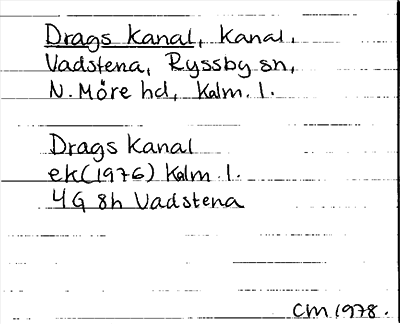 Drags kanal, kanal.
Vadstena, Ryssby sn,
N. Möre hd, Kalm. l.
Drags kanal
ek(1976) Kalm. l.
4G 8h Vadstena
CM 1978.